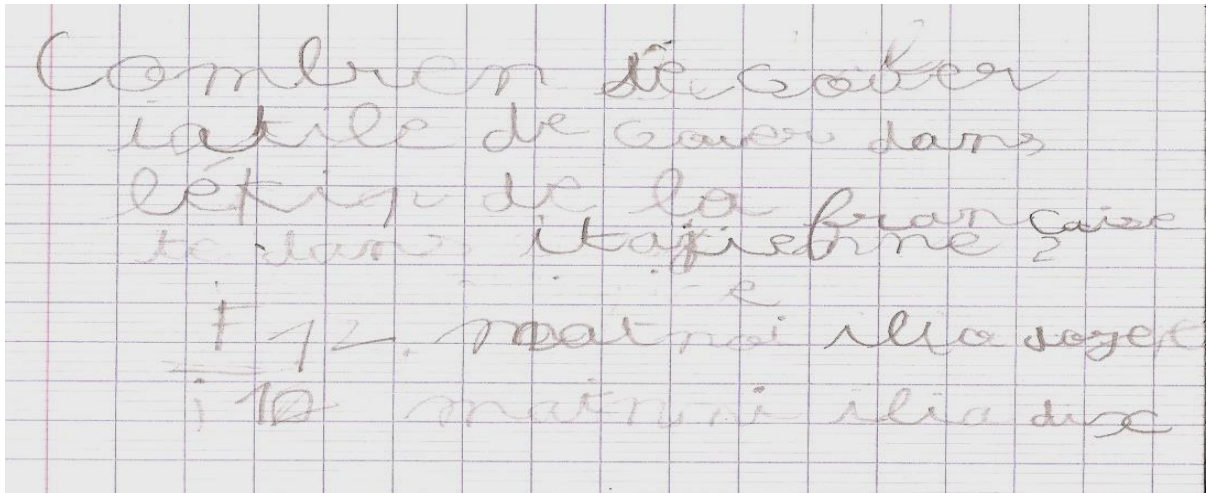 Combien de
iatile de gouer dans
lékip de la française
te dans itajienne ?
F 12. matnoi ilia
i 10 matnoi ilia dix